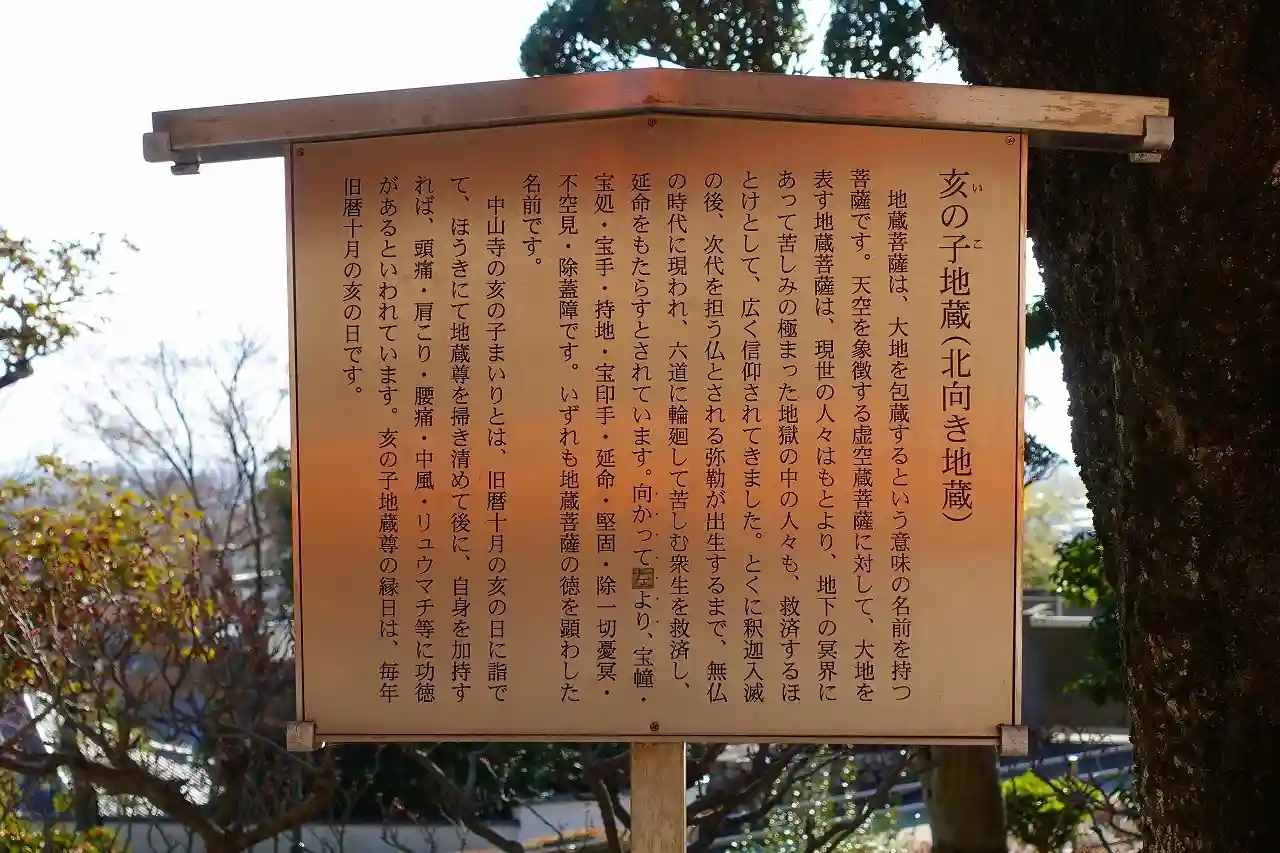 亥の子地蔵(北向き地蔵)
い こ
地蔵菩薩は、大地を包蔵するという意味の名前を持つ
菩薩です。天空を象徴する虚空蔵菩薩に対して、大地を
表す地蔵菩薩は、現世の人々はもとより、地下の冥界に
あって苦しみの極まった地獄の中の人々も、救済するほ
とけとして、広く信仰されてきました。とくに釈迦入滅
の後、次代を担う仏とされる弥勒が出生するまで、無仏
の時代に現われ、六道に輪廻して苦しむ衆生を救済し、
延命をもたらすとされています。向かって左より、宝幢・
宝処・宝手・持地・宝印手・延命・堅固・除一切憂冥・
不空見・除蓋障です。いずれも地蔵菩薩の徳を顕わした
名前です。
中山寺の亥の子まいりとは、旧暦十月の亥の日に詣で
て、ほうきにて地蔵尊を掃き清めて後に、自身を加持す
れば、頭痛・肩こり・腰痛・中風・リュウマチ等に功徳
があるといわれています。亥の子地蔵尊の縁日は、毎年
旧暦十月の亥の日です。